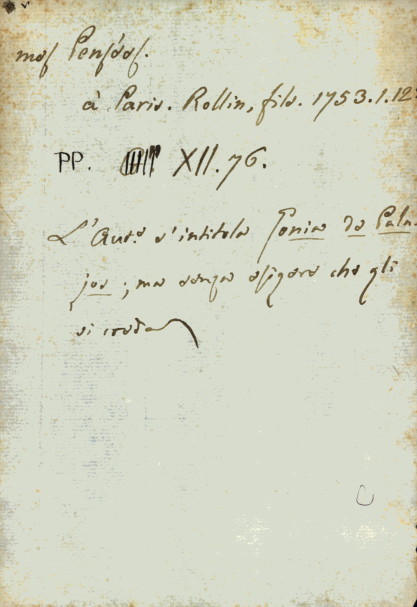 mes Pensées.
à Paris. Rollin, fils. 1753. 1. 12
PP. XII. 76.
L'Aut.e s'intitola Génie de Pala-
jos; ma senza esigere che gli
si creda